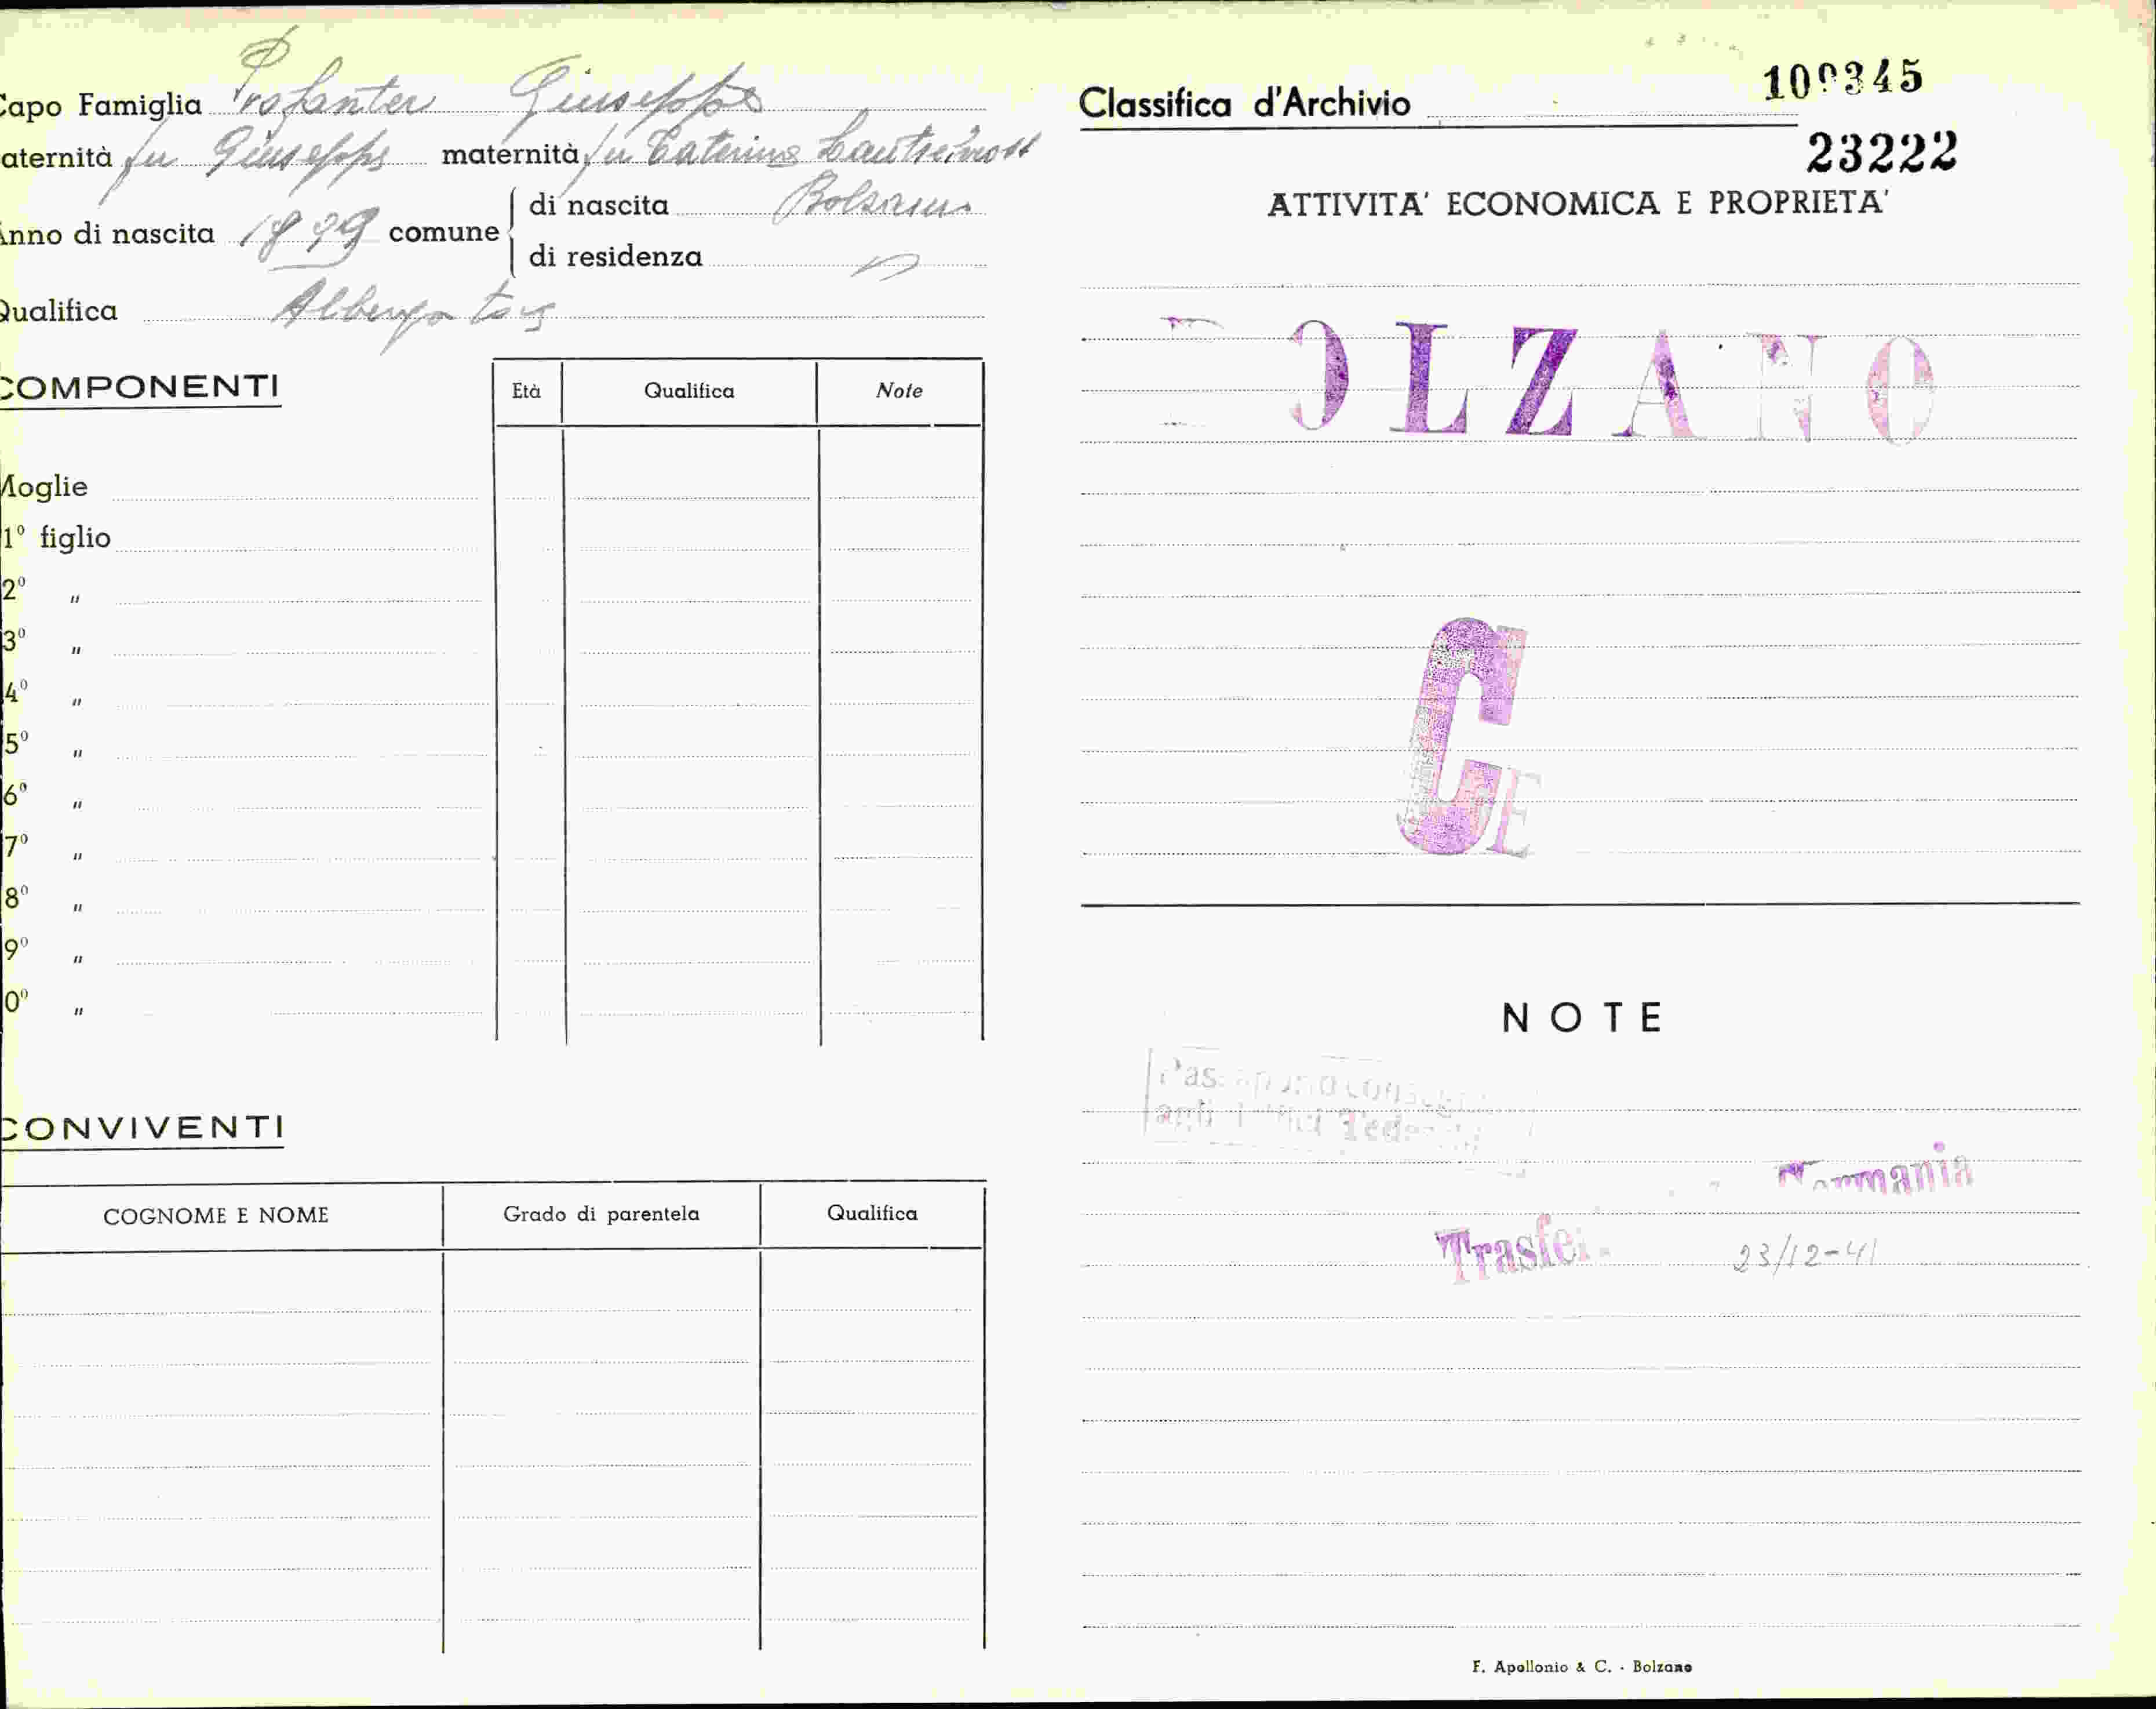 Capo Famiglia Profanter Giuseppe
aternità fu Giuseppe maternità fu Caterina
Anno di nascita 1899 comune di nascita Bolzano
di residenza
Qualifica Albergatore
COMPONENTI
Età Qualifica Note
Moglie
1º figlio
2º "
3º "
4º "
5º "
6º "
7º "
8º "
9º "
0º "
CONVIVENTI
COGNOME E NOME Grado di parentela Qualifica
Classifica d'Archivio 109345
23222
ATTIVITA' ECONOMICA E PROPRIETA'
BOLZANO
C
E
NOTE
Germania
Trasfer. 23/12-41
F. Apollonio & C. - Bolzano